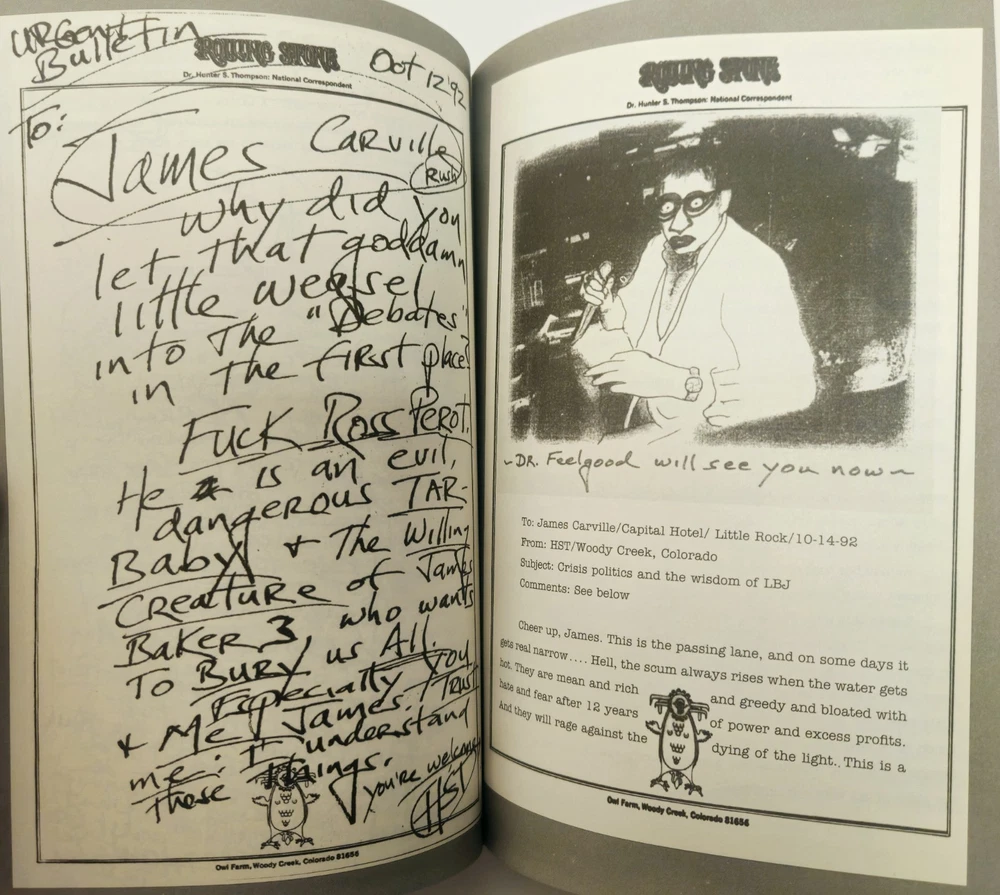 URGENT
Bulletin
ROLLING STONE
Oct 12 '92
Dr. Hunter S. Thompson: National Correspondent
To:
James Carville
Rush
Why did you
let that goddamn
little weasel
into The "Debates"
in the first place?
FUCK ROSS PEROT.
He is an evil,
dangerous TAR-
Baby & The Willing
CREATURE of James
BAKER 3, who wants
To BURY us All.
Especially You
& Me, James. TRUST
me. I understand
These Things.
you're welcome
HST
Owl Farm, Woody Creek, Colorado 81656
ROLLING STONE
Dr. Hunter S. Thompson: National Correspondent
~ DR. Feelgood will see you now ~
To: James Carville/Capital Hotel/ Little Rock/10-14-92
From: HST/Woody Creek, Colorado
Subject: Crisis politics and the wisdom of LBJ
Comments: See below
Cheer up, James. This is the passing lane, and on some days it
gets real narrow.... Hell, the scum always rises when the water gets
hot. They are mean and rich and greedy and bloated with
hate and fear after 12 years of power and excess profits.
And they will rage against the dying of the light. This is a
Owl Farm, Woody Creek, Colorado 81656